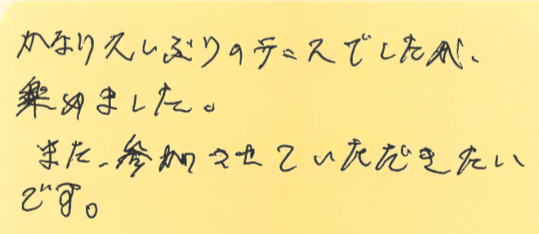 かなり久しぶりのテニスでしたが、
楽めました。
また、参加させていただきたい
です。